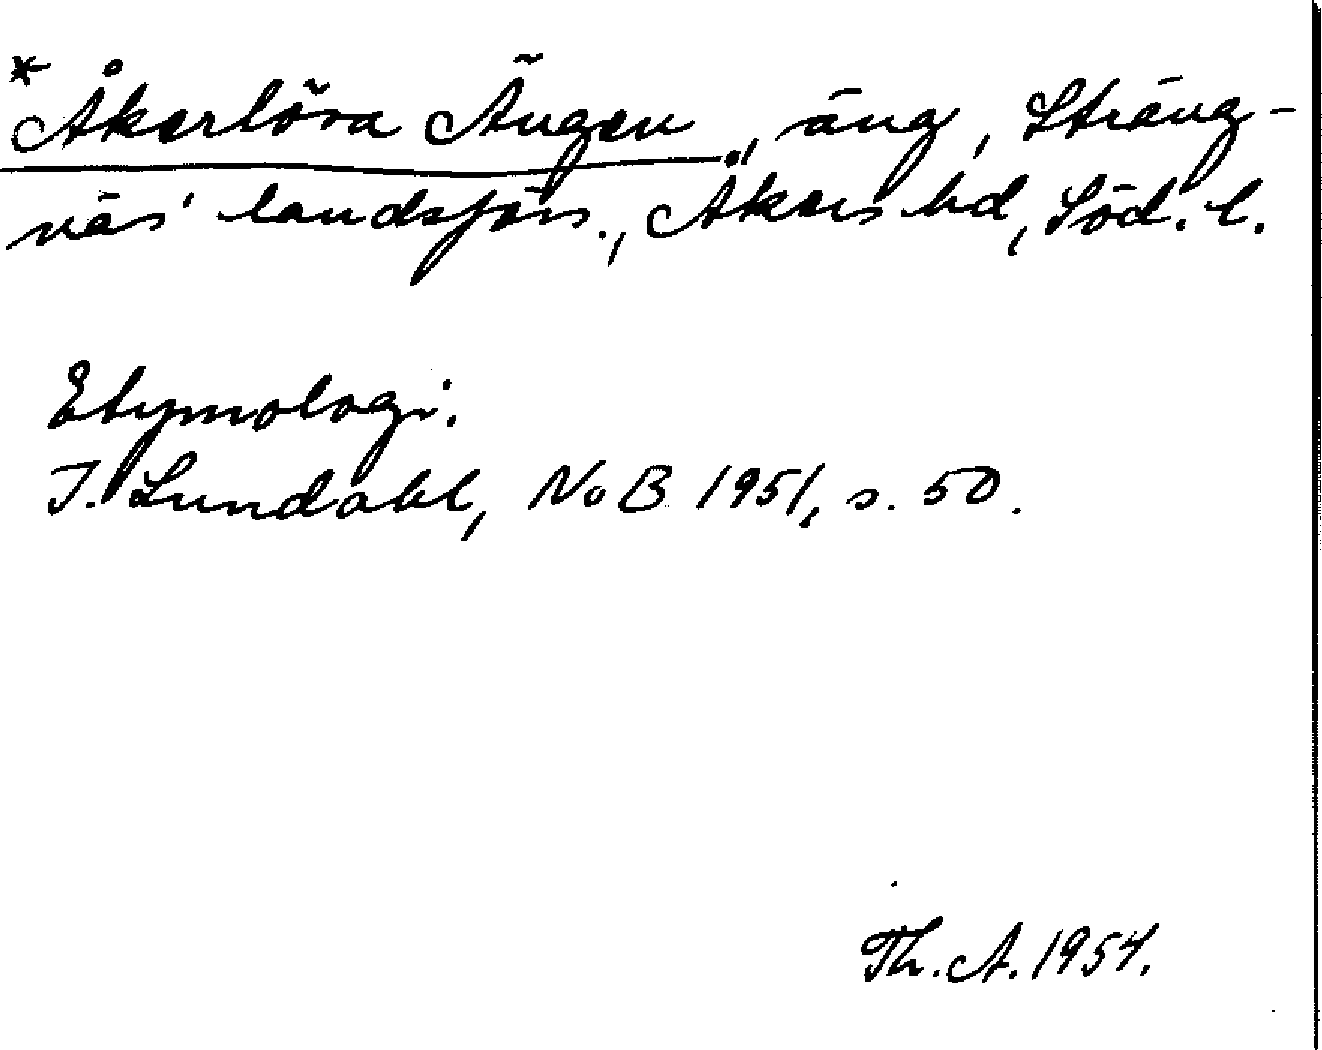 *Åkerlöva Ängen, äng, Sträng-
näs' landsförs., Åkers hd, Söd. l.
Etymologi.
I. Lundahl, NoB 1951, s. 50.
Th. A. 1954.